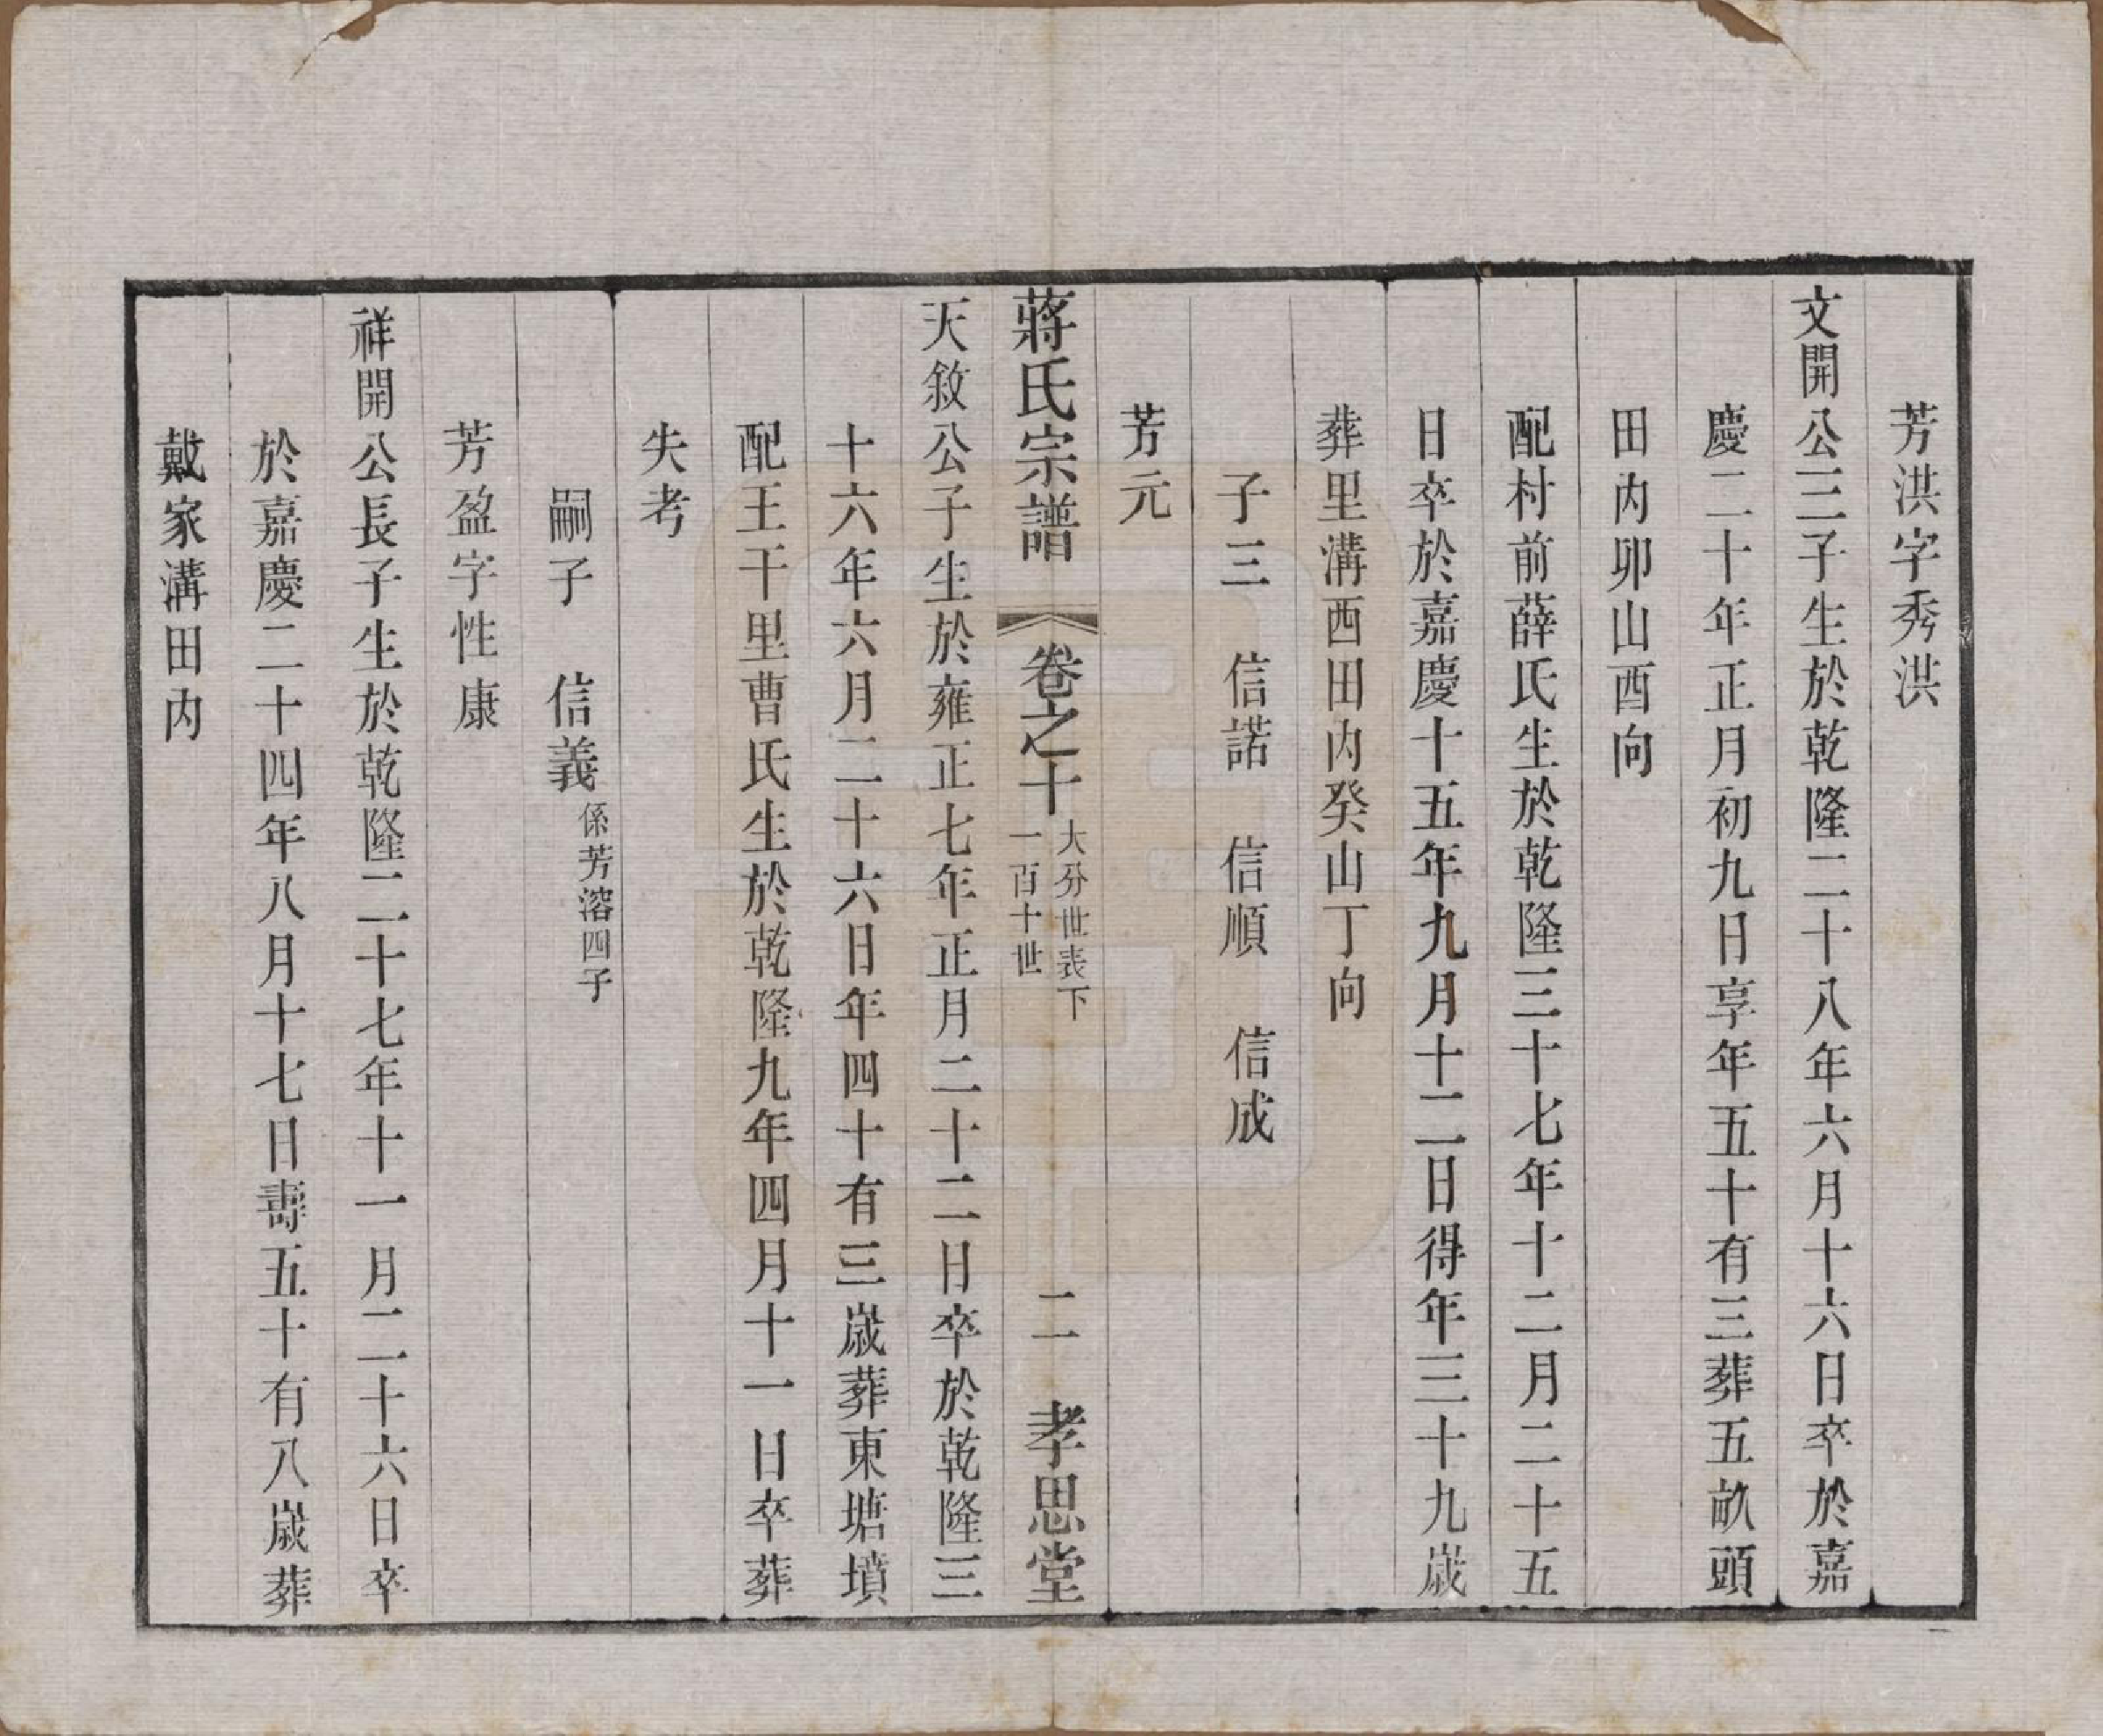 芳洪字秀洪
文開公三子生於乾隆二十八年六月十六日卒於嘉
慶二十年正月初九日享年五十有三葬五畝頭
田內卯山酉向
配村前薛氏生於乾隆三十七年十二月二十五
日卒於嘉慶十五年九月十二日得年三十九歲
葬里溝西田內癸山丁向
子三　信諾　信順　信成
芳元
蔣氏宗譜　卷之十　大分世表下　一百十世　二　孝思堂
天敘公子生於雍正七年正月二十二日卒於乾隆三
十六年六月二十六日年四十有三歲葬東塘墳
配王干里曹氏生於乾隆九年四月十一日卒葬
失考
嗣子　信義係芳溶四子
芳盈字性康
祥開公長子生於乾隆二十七年十一月二十六日卒
於嘉慶二十四年八月十七日壽五十有八歲葬
戴家溝田內